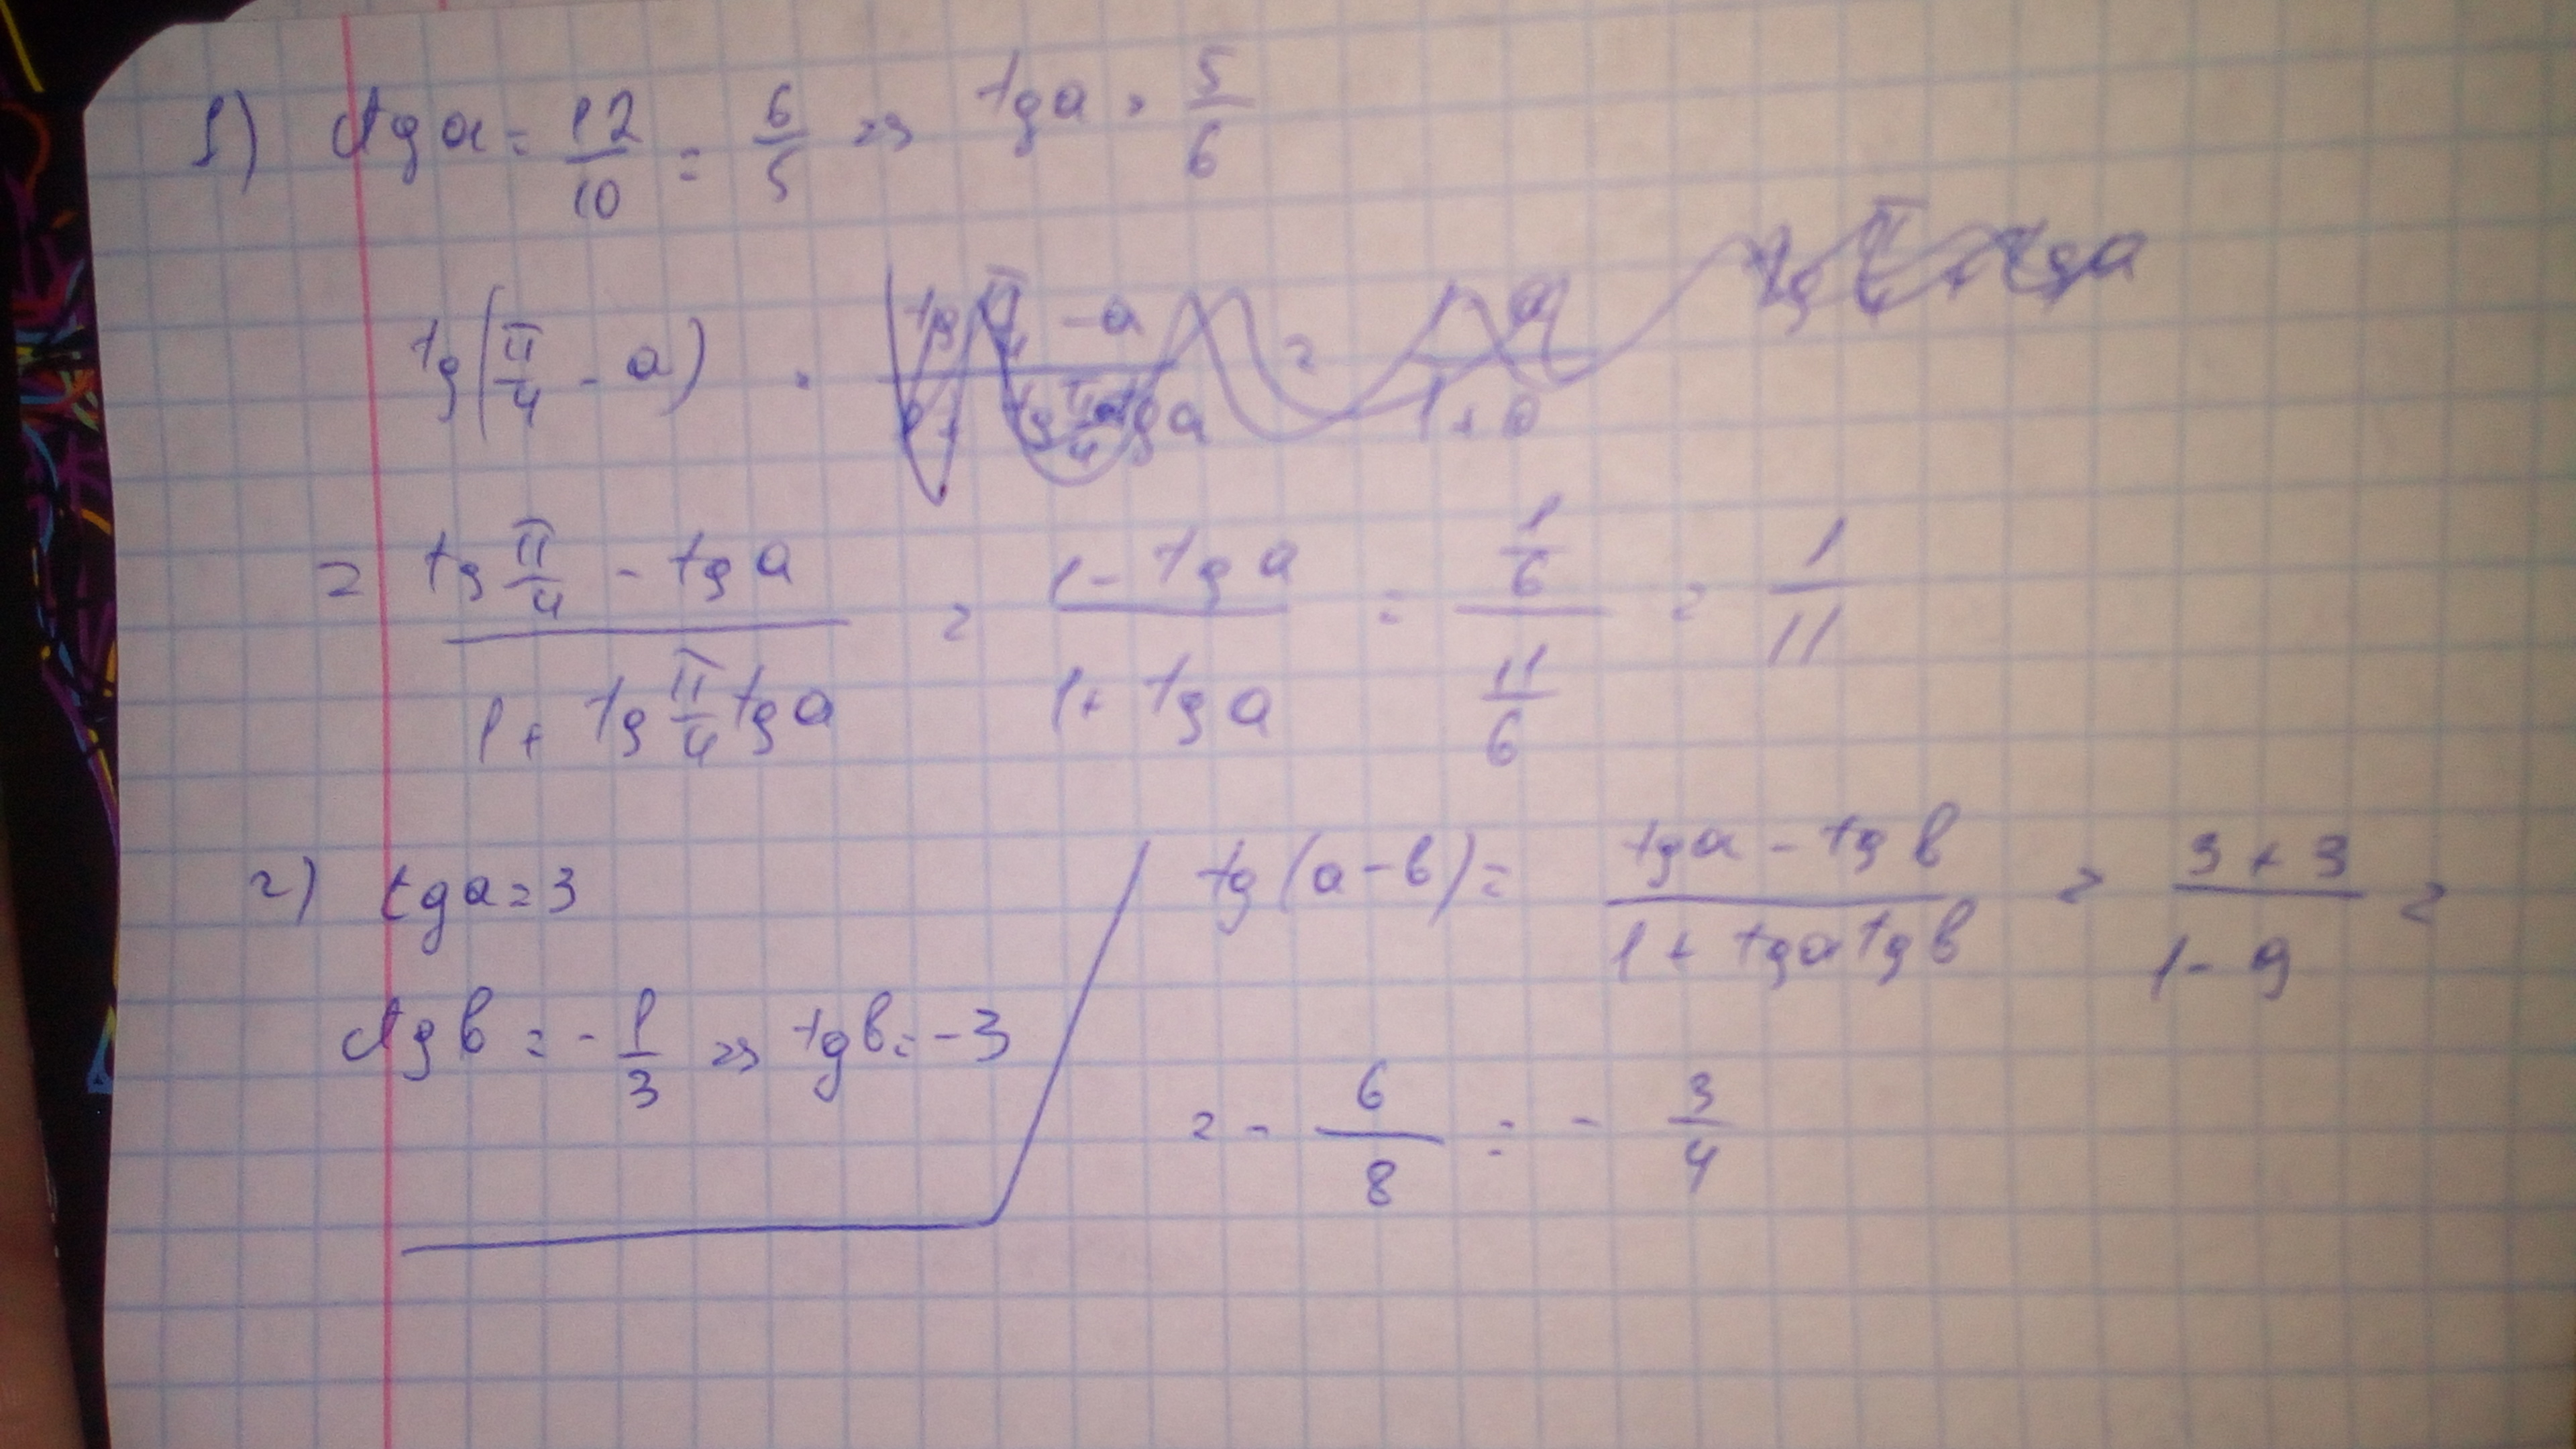 1) ctg a = 12/10 = 6/5 => tg a = 5/6
tg(π/4 - a) =
= (tg π/4 - tg a)/(1 + tg π/4 tg a) = (1 - tg a)/(1 + tg a) = (1/6)/(11/6) = 1/11
2) tg a = 3
ctg b = -1/3 => tg b = -3
tg(a-b) = (tg a - tg b)/(1 + tg a tg b) = (3 + 3)/(1 - 9) =
= - 6/8 = - 3/4